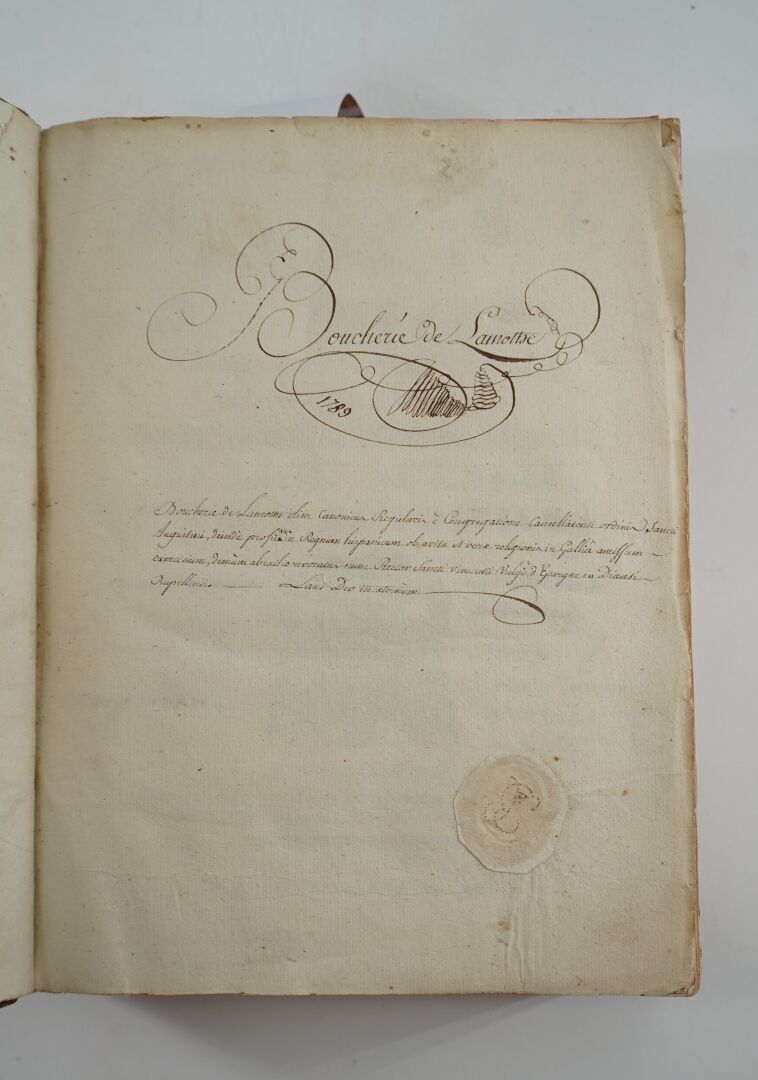 Boucherie de Lamothe
1789
Boucherie de Lamothe olim Canonicus Regularis è Congregatione Cancellatensi ordinis Sancti
Augustini, deindè in Regnum hispanicum ob avitæ et veræ religionis in Galliâ amissum
exercitium, demùm ab exilio revocatus nunc Rector Sancti Vulgò d'Epargne en Diœcesi
Rupellensi. Laus Deo in æternum.